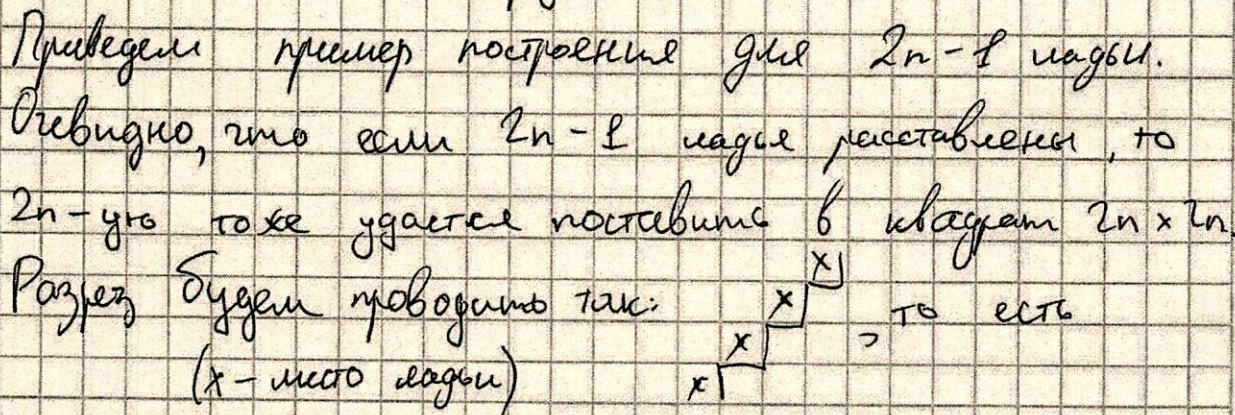 Приведем пример построения для 2n-1 ладьи.
Очевидно, что если 2n-1 ладья расставлены, то
2n-ую тоже удастся поставить в квадрат 2n x 2n.
Разрез будем проводить так: x x x x , то есть
(x - место ладьи)